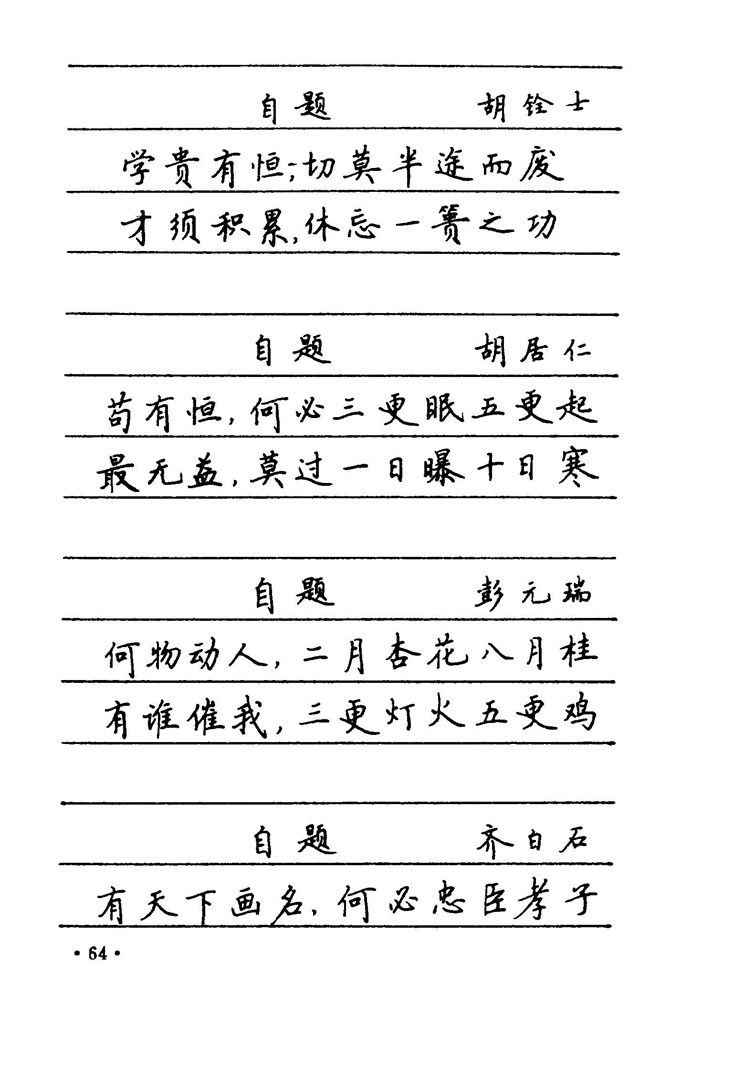 自题 胡铨士
学贵有恒;切莫半途而废
才须积累,休忘一篑之功
自题 胡居仁
苟有恒,何必三更眠五更起
最无益,莫过一日曝十日寒
自题 彭元瑞
何物动人,二月杏花八月桂
有谁催我,三更灯火五更鸡
自题 齐白石
有天下画名,何必忠臣孝子
·64·